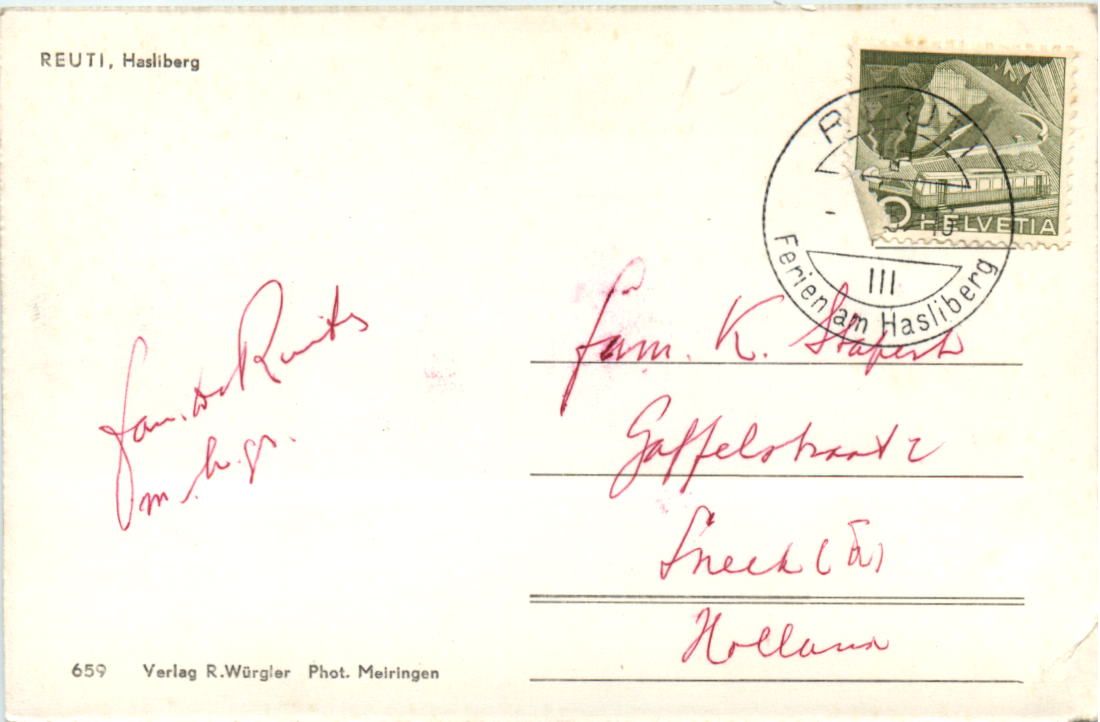 REUTI, Hasliberg
HELVETIA
Ferien am Hasliberg
III
fam.
m. h. gr.
Fam. K. Stapert
Gaffelstraat 2
Sneek (Fr)
Holland
659 Verlag R.Würgler Phot. Meiringen